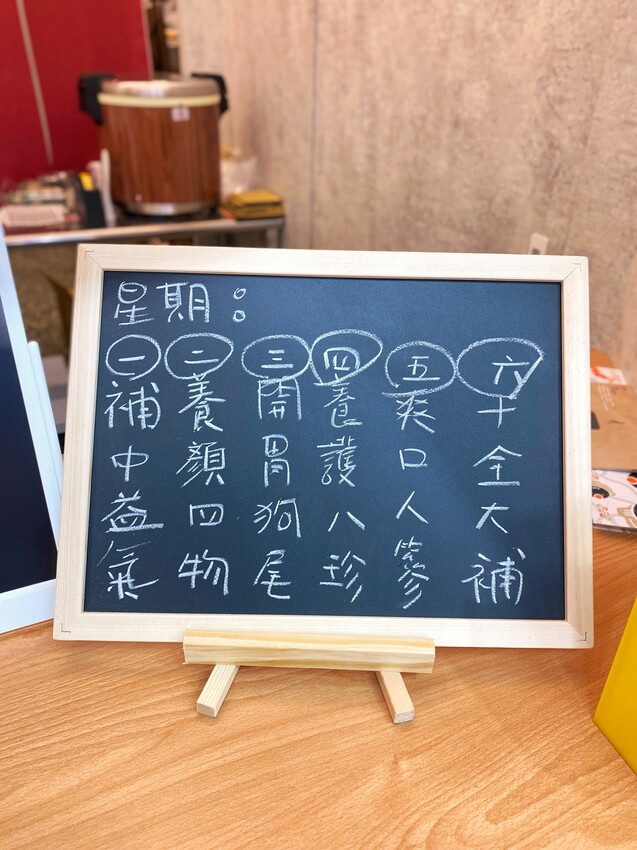 星期：
一補中益氣
二養顏四物
三開胃狗尾
四養護八珍
五爽口人蔘
六十全大補